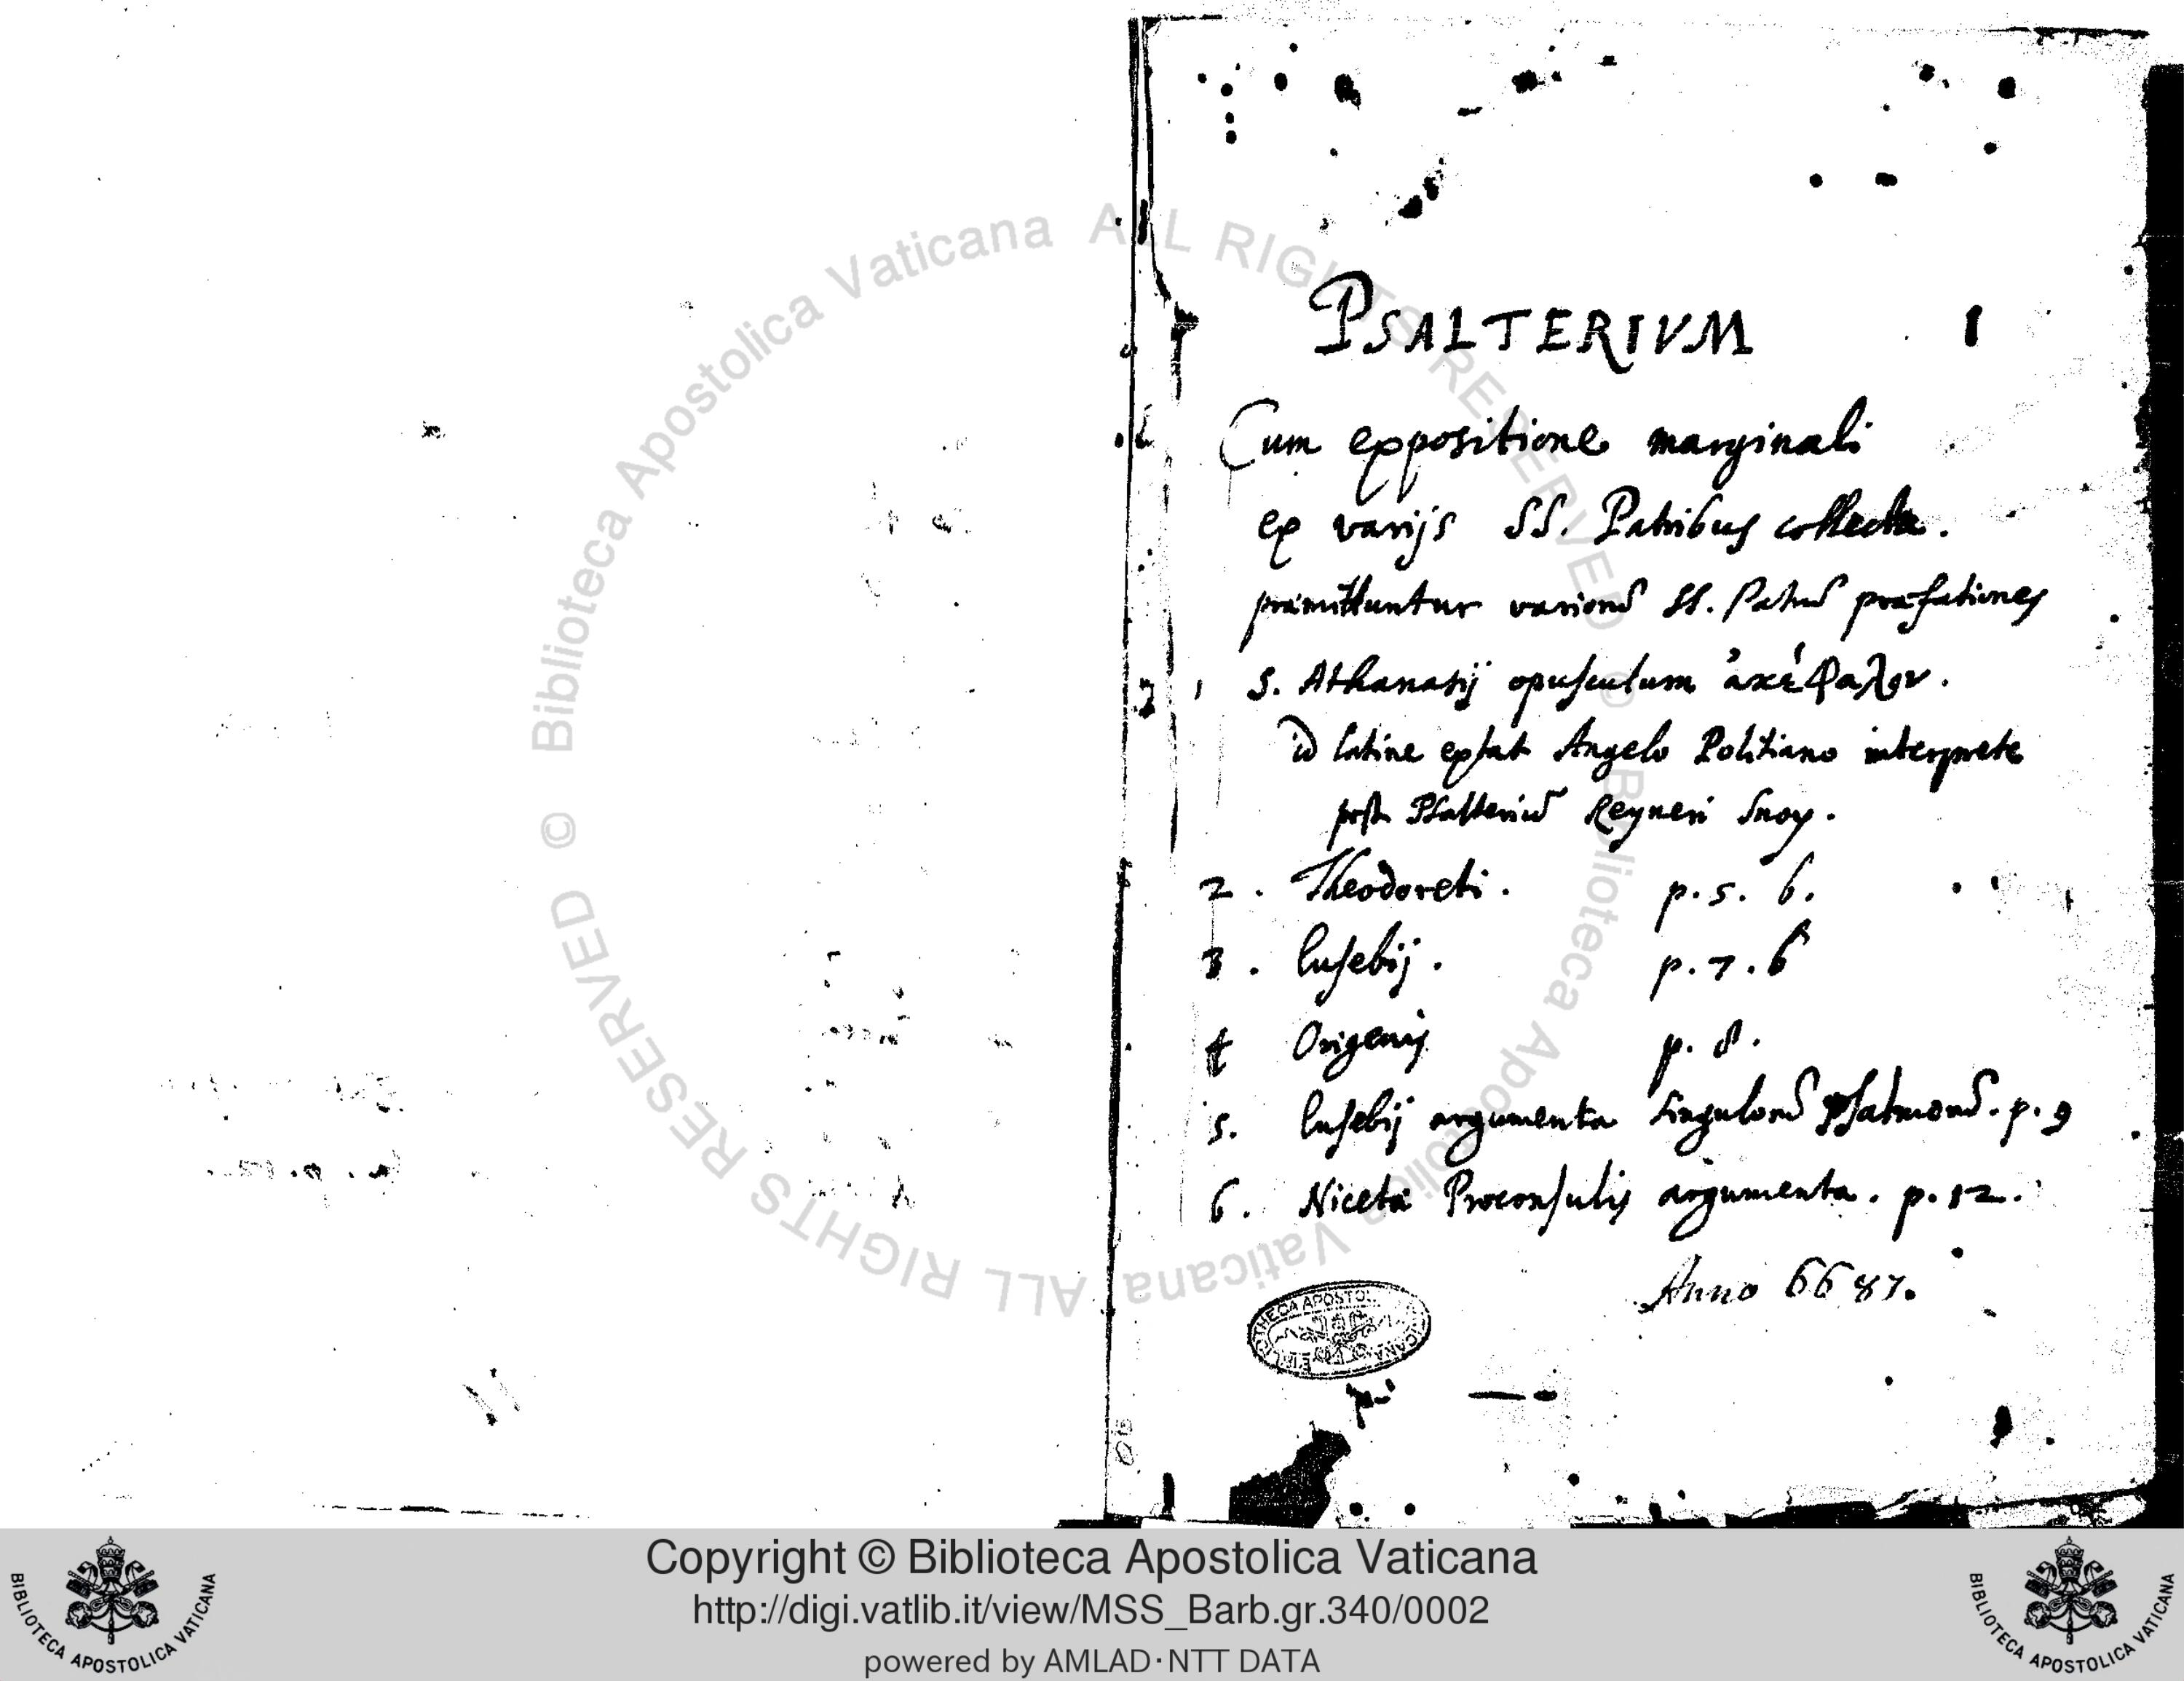 PSALTERIVM 1
Cum expositione marginali
ex varijs SS. Patribus collecta.
præmittuntur variorũ SS. Patrũ præfationes
1 S. Athanasij opusculum ἀκέφαλον.
id latine extat Angelo Politiano interprete
post Psalteriũ Reyneri Snoy.
2. Theodoreti. p. 5. b.
3. Eusebij. p. 7. b
4 Origenis p. 8.
5. Eusebij argumenta singulorũ psalmorũ. p. 9
6. Nicetæ Proconsulis argumenta. p. 12.
Anno 6687.
© Biblioteca Apostolica Vaticana ALL RIGHTS RESERVED © Biblioteca Apostolica Vaticana ALL RIGHTS RESERVED
Copyright © Biblioteca Apostolica Vaticana
http://digi.vatlib.it/view/MSS_Barb.gr.340/0002
powered by AMLAD·NTT DATA
BIBLIOTECA APOSTOLICA VATICANA
BIBLIOTECA APOSTOLICA VATICANA